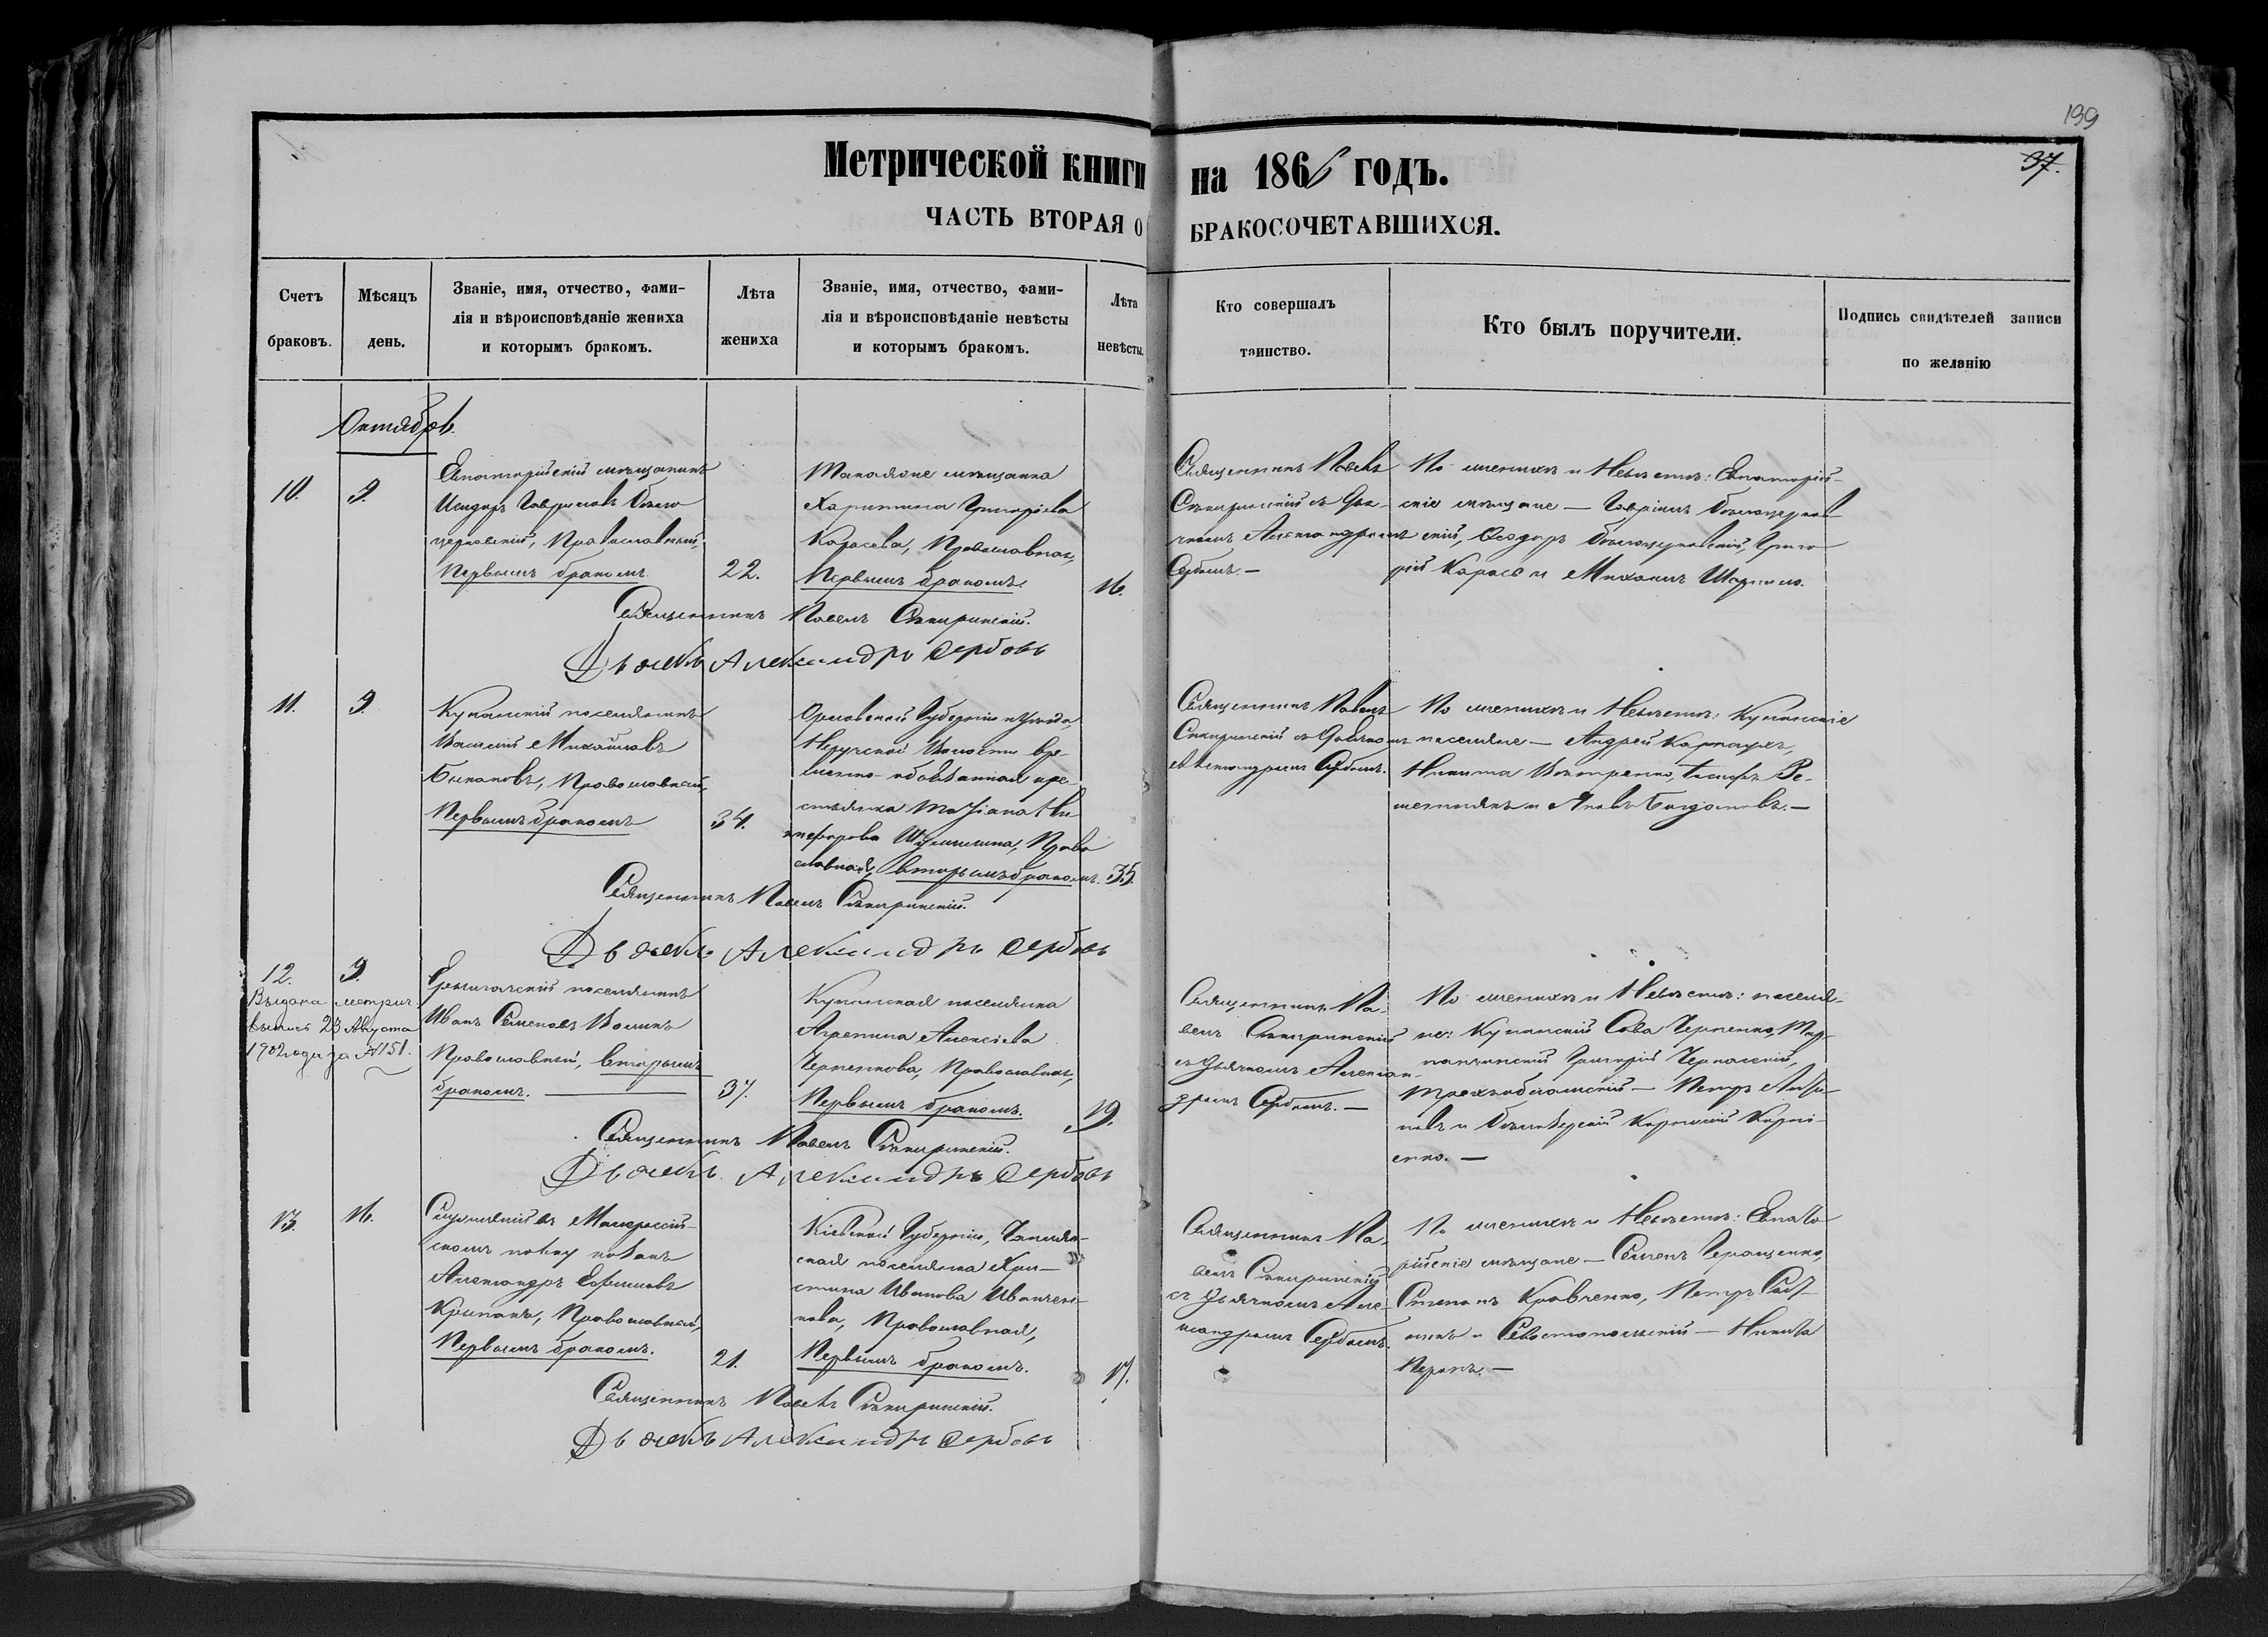 199
37.
Метрической книги на 1866 годъ.
ЧАСТЬ ВТОРАЯ О БРАКОСОЧЕТАВШИХСЯ.
Счетъ
браковъ.
Мѣсяцъ
день.
Званіе, имя, отчество, фами-
лія и вѣроисповѣданіе жениха
и которымъ бракомъ.
Лѣта
жениха
Званіе, имя, отчество, фами-
лія и вѣроисповѣданіе невѣсты
и которымъ бракомъ.
Лѣта
невѣсты.
Кто совершалъ
таинство.
Кто былъ поручители.
Подпись свидѣтелей записи
по желанію
Октябрь.
10.
9.
Евпаторійскій мѣщанинъ
Исидоръ Гавриловъ Бѣло
церковскій, Православный,
Первымъ бракомъ.
22.
мѣщанка
Харитина Григорьева
Карасева, Православная,
Первымъ бракомъ.
16.
Священникъ Павелъ
Секиринскій съ Дья-
чкомъ Александромъ
Сербовъ. —
По женихѣ и Невѣстѣ: Евпаторій-
скіе мѣщане — Гавріилъ Бѣлоцерков-
скій, Ѳеодоръ Бѣлоцерковскій, Григо
рій Карась и Михаилъ
Священникъ Павелъ Секиринскій.
Дьячекъ Александръ Сербовъ
11.
9.
поселянинъ
Василій Михайловъ
Православный,
Первымъ бракомъ
34.
Орловской Губерніи и уѣзда,
Волости вре-
менно-обязанная кре-
стьянка Ни-
кифорова Право
славная, вторымъ бракомъ.
35.
Священникъ Павелъ
Секиринскій съ Дьячкомъ
Александромъ Сербовъ.
По женихѣ и Невѣстѣ:
поселяне — Андрей
Никита Іосифъ Рѣ-
шетнякъ и Яковъ Богдановъ. —
Священникъ Павелъ Секиринскій.
Дьячекъ Александръ Сербовъ
12.
9.
Выдана метрич.
выпись 23 Августа
1902 года за № 151.
поселянинъ
Иванъ Семеновъ
Православный, вторымъ
бракомъ. —
37.
поселянка
Агрепина Алексіева
Черненкова, Православная,
Первымъ бракомъ.
19.
Священникъ Па-
велъ Секиринскій
съ Дьячкомъ Алексан-
дромъ Сербовъ. —
По женихѣ и Невѣстѣ: поселя-
не: Сава Черненко,
Григорій Черкасскій,
— Петръ
и Корнилій Корні-
енко. —
Священникъ Павелъ Секиринскій.
Дьячекъ Александръ Сербовъ
13.
16.
Служившій въ Малороссій-
скомъ полку козакъ
Александръ Ефимовъ
Православный,
Первымъ бракомъ.
21.
Кіевской Губерніи,
ская поселянка Хри-
стина Иванова Иванчен-
кова, Православная,
Первымъ бракомъ.
17.
Священникъ Па-
велъ Секиринскій
съ Дьячкомъ Але-
ксандромъ Сербовъ.
По женихѣ и Невѣстѣ: Евпато
рійскіе мѣщане — Семенъ Геращенко,
Степанъ Кравченко, Петръ
и Севастопольскій — Никита
Священникъ Павелъ Секиринскій.
Дьячекъ Александръ Сербовъ